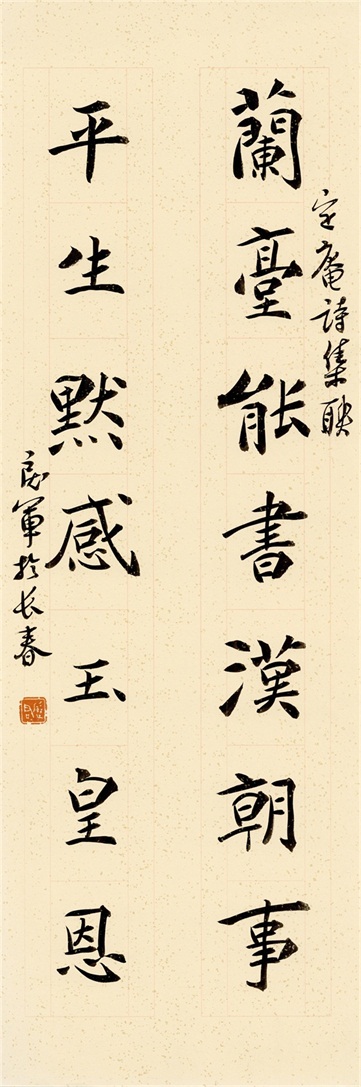 定庵詩集聯
蘭臺能書漢朝事
平生默感玉皇恩
良軍於长春